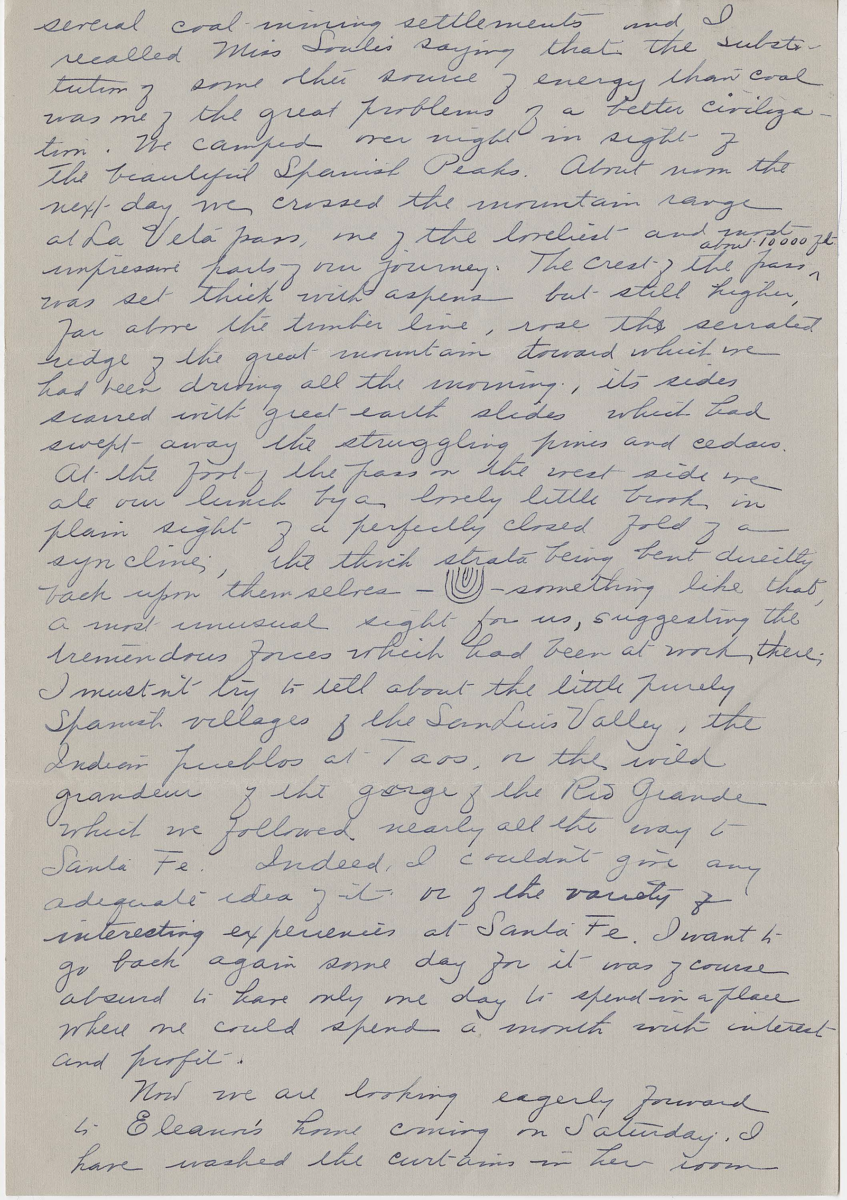 several coal-mining settlements and I
recalled Miss Soulis saying that the substi-
tution of some other source of energy than coal
was one of the great problems of a better civiliza-
tion. We camped over night in sight of
the beautiful Spanish Peaks. About noon the
next day we crossed the mountain range
at La Veta pass, one of the loveliest and most
about 10000 ft.
impressive parts of our journey. The crest of the pass
was set thick with aspens but still higher,
far above the timber line, rose the serrated
ridge of the great mountain toward which we
had been driving all the morning, its sides
scarred with great earth slides which had
swept away the struggling pines and cedars.
At the foot of the pass on the west side we
ate our lunch by a lovely little brook in
plain sight of a perfectly closed fold of a
syncline, the thick strata being bent directly
back upon themselves – – something like that,
a most unusual sight for us, suggesting the
tremendous forces which had been at work there.
I mustn't try to tell about the little purely
Spanish villages of the San Luis Valley, the
Indian pueblos at Taos, or the wild
grandeur of the gorge of the Rio Grande
which we followed nearly all the way to
Santa Fe. Indeed, I couldn't give any
adequate idea of it or of the variety of
interesting experiences at Santa Fe. I want to
go back again some day for it was of course
absurd to have only one day to spend in a place
where one could spend a month with interest
and profit.
Now we are looking eagerly forward
to Eleanor's home coming on Saturday. I
have washed the curtains in her room